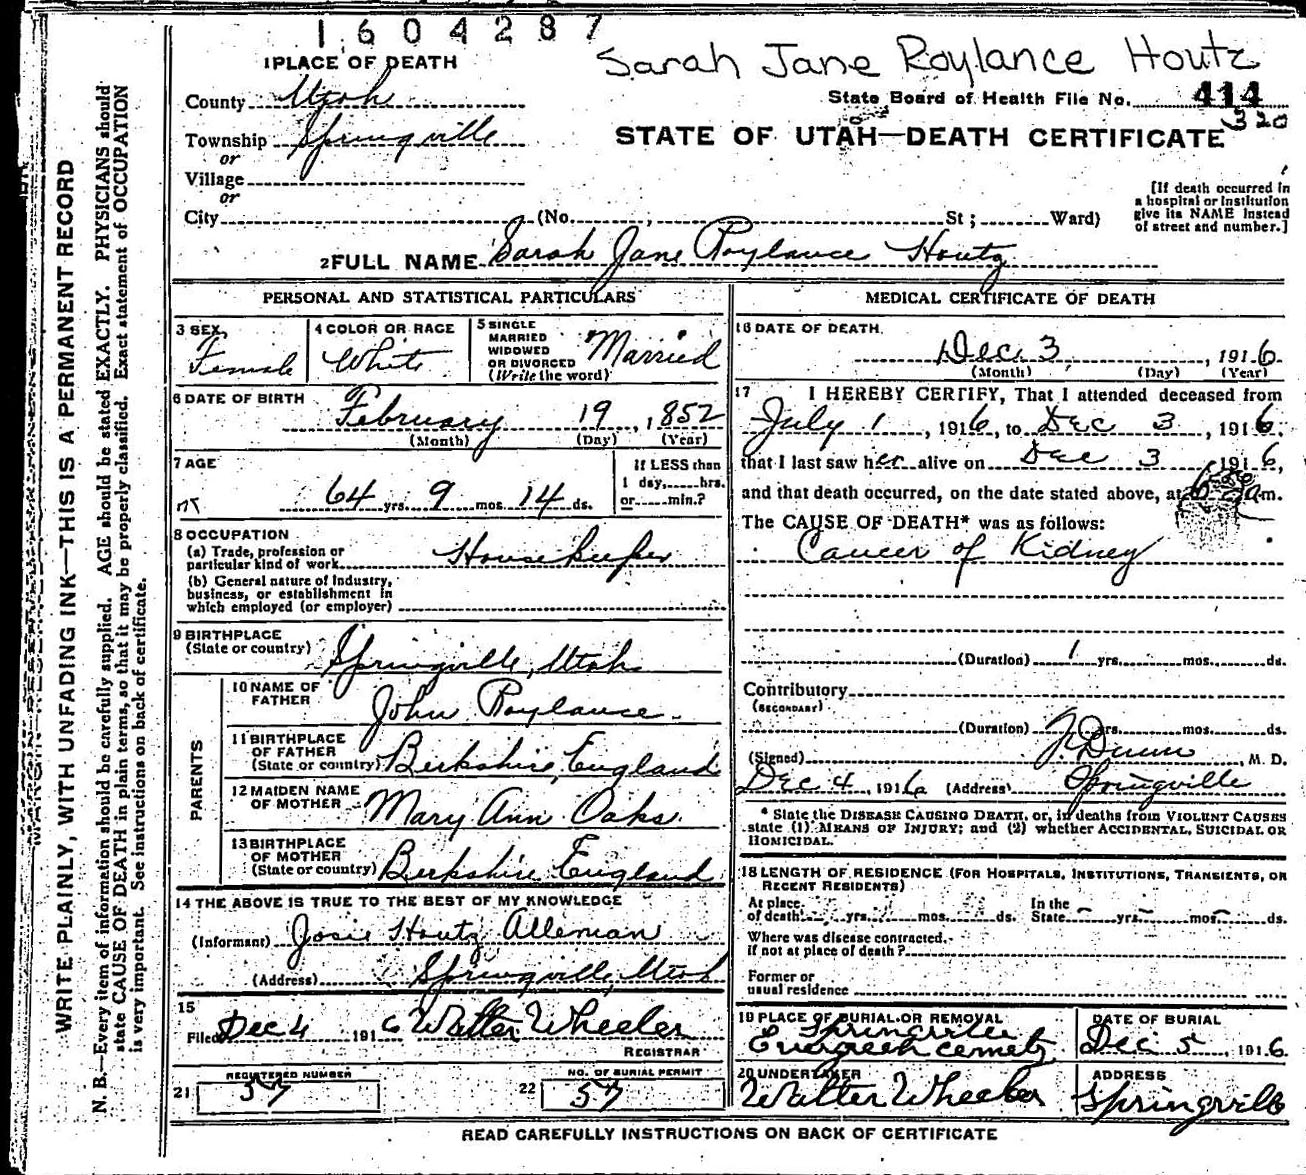 1604287
Sarah Jane Roylance Houtz
1 PLACE OF DEATH
County Utah
State Board of Health File No. 414
Township Springville
320
or
STATE OF UTAH—DEATH CERTIFICATE
Village
or
City (No. ; St ; Ward)
[If death occurred in
a hospital or institution
give its NAME instead
of street and number.]
2 FULL NAME Sarah Jane Roylance Houtz
PERSONAL AND STATISTICAL PARTICULARS
3 SEX
Female
4 COLOR OR RACE
White
5 SINGLE
MARRIED
WIDOWED
OR DIVORCED
(Write the word)
Married
6 DATE OF BIRTH
February 19, 1852
(Month) (Day) (Year)
7 AGE
64 yrs. 9 mos. 14 ds.
If LESS than
1 day, hrs.
or min.?
8 OCCUPATION
(a) Trade, profession or
particular kind of work Housekeeper
(b) General nature of industry,
business, or establishment in
which employed (or employer)
9 BIRTHPLACE
(State or country) Springville, Utah
PARENTS
10 NAME OF
FATHER John Roylance.
11 BIRTHPLACE
OF FATHER
(State or country) Berkshire, England
12 MAIDEN NAME
OF MOTHER Mary Ann Oaks.
13 BIRTHPLACE
OF MOTHER
(State or country) Berkshire England
14 THE ABOVE IS TRUE TO THE BEST OF MY KNOWLEDGE
(Informant) Josie Houtz Alleman
(Address) Springville, Utah
15
Filed Dec 4 1916 Walter Wheeler
REGISTRAR
REGISTERED NUMBER
21 57
NO. OF BURIAL PERMIT
22 57
MEDICAL CERTIFICATE OF DEATH
16 DATE OF DEATH
Dec. 3, 1916
(Month) (Day) (Year)
17 I HEREBY CERTIFY, That I attended deceased from
July 1, 1916, to Dec 3, 1916,
that I last saw her alive on Dec 3 1916,
and that death occurred, on the date stated above, at am.
The CAUSE OF DEATH* was as follows:
Cancer of Kidney
(Duration) 1 yrs. mos. ds.
Contributory
(SECONDARY)
(Duration) yrs. mos. ds.
(Signed) Dunn, M. D.
Dec 4, 1916 (Address) Springville
* State the DISEASE CAUSING DEATH, or, in deaths from VIOLENT CAUSES
state (1) MEANS OF INJURY; and (2) whether ACCIDENTAL, SUICIDAL OR
HOMICIDAL.
18 LENGTH OF RESIDENCE (FOR HOSPITALS, INSTITUTIONS, TRANSIENTS, OR
RECENT RESIDENTS)
At place
of death yrs. mos. ds.
In the
State yrs. mos. ds.
Where was disease contracted.
if not at place of death?
Former or
usual residence
19 PLACE OF BURIAL OR REMOVAL
Springville
Evergreen cemetz
DATE OF BURIAL
Dec 5, 1916
20 UNDERTAKER
Walter Wheeler
ADDRESS
Springville
READ CAREFULLY INSTRUCTIONS ON BACK OF CERTIFICATE
WRITE PLAINLY, WITH UNFADING INK—THIS IS A PERMANENT RECORD
N. B.—Every item of information should be carefully supplied. AGE should be stated EXACTLY. PHYSICIANS should
state CAUSE OF DEATH in plain terms, so that it may be properly classified. Exact statement of OCCUPATION
is very important. See instructions on back of certificate.